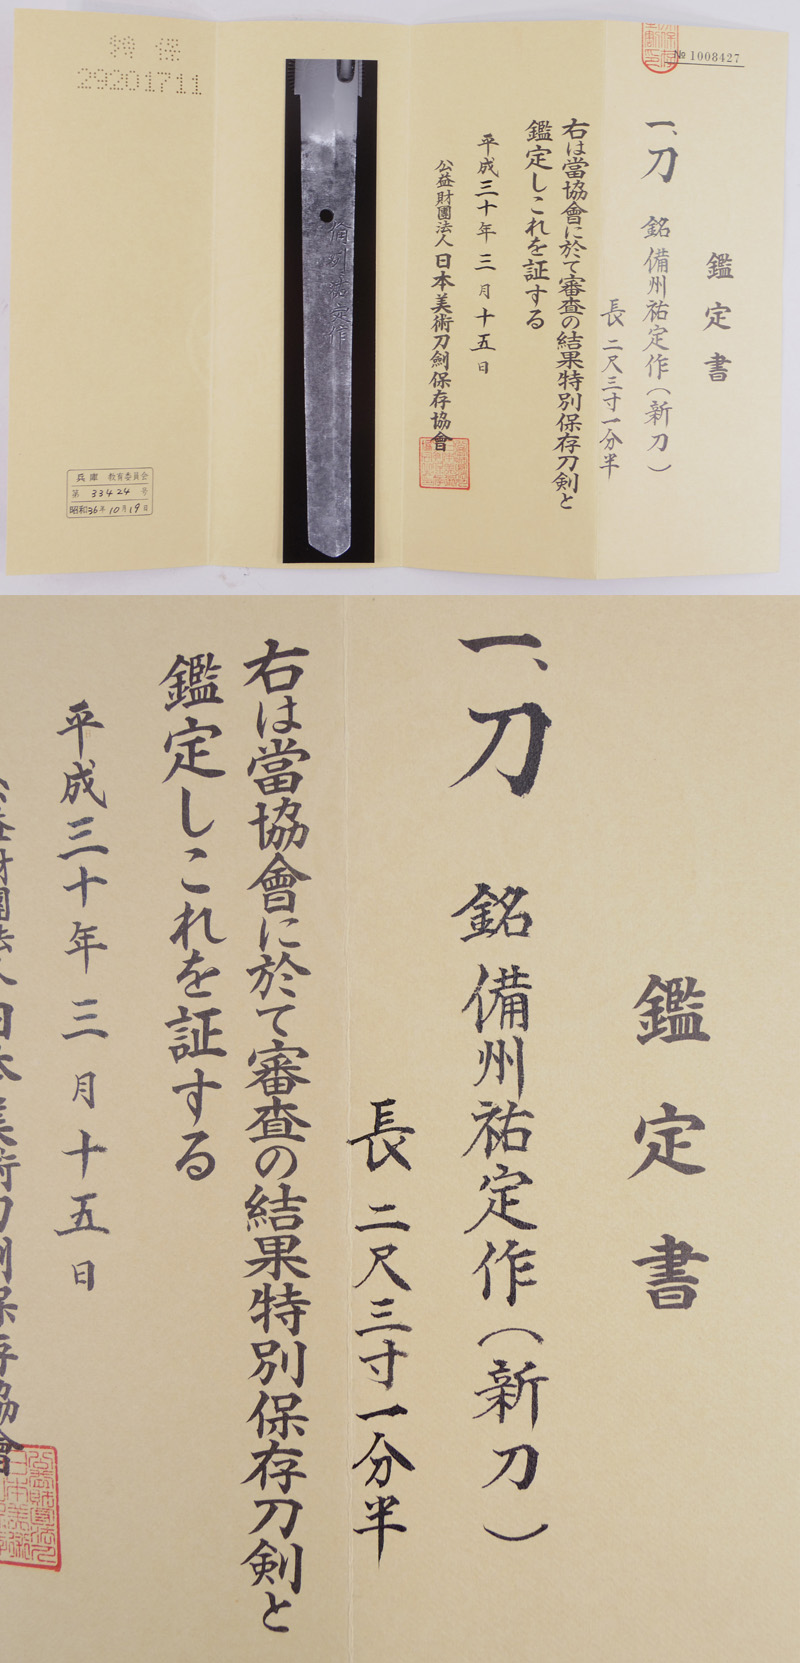 № 1008427
鑑定書
一、刀 銘 備州祐定作（新刀）
長 二尺三寸一分半
右は當協會に於て審査の結果特別保存刀剣と
鑑定しこれを証する
平成三十年三月十五日
公益財團法人 日本美術刀劍保存協會
備州祐定作
特保
29201711
兵庫 教育委員会
第 33424 号
昭和36年10月19日
鑑定書
一、刀 銘 備州祐定作（新刀）
長 二尺三寸一分半
右は當協會に於て審査の結果特別保存刀剣と
鑑定しこれを証する
平成三十年三月十五日
公益財團法人日本美術刀劍保存協會